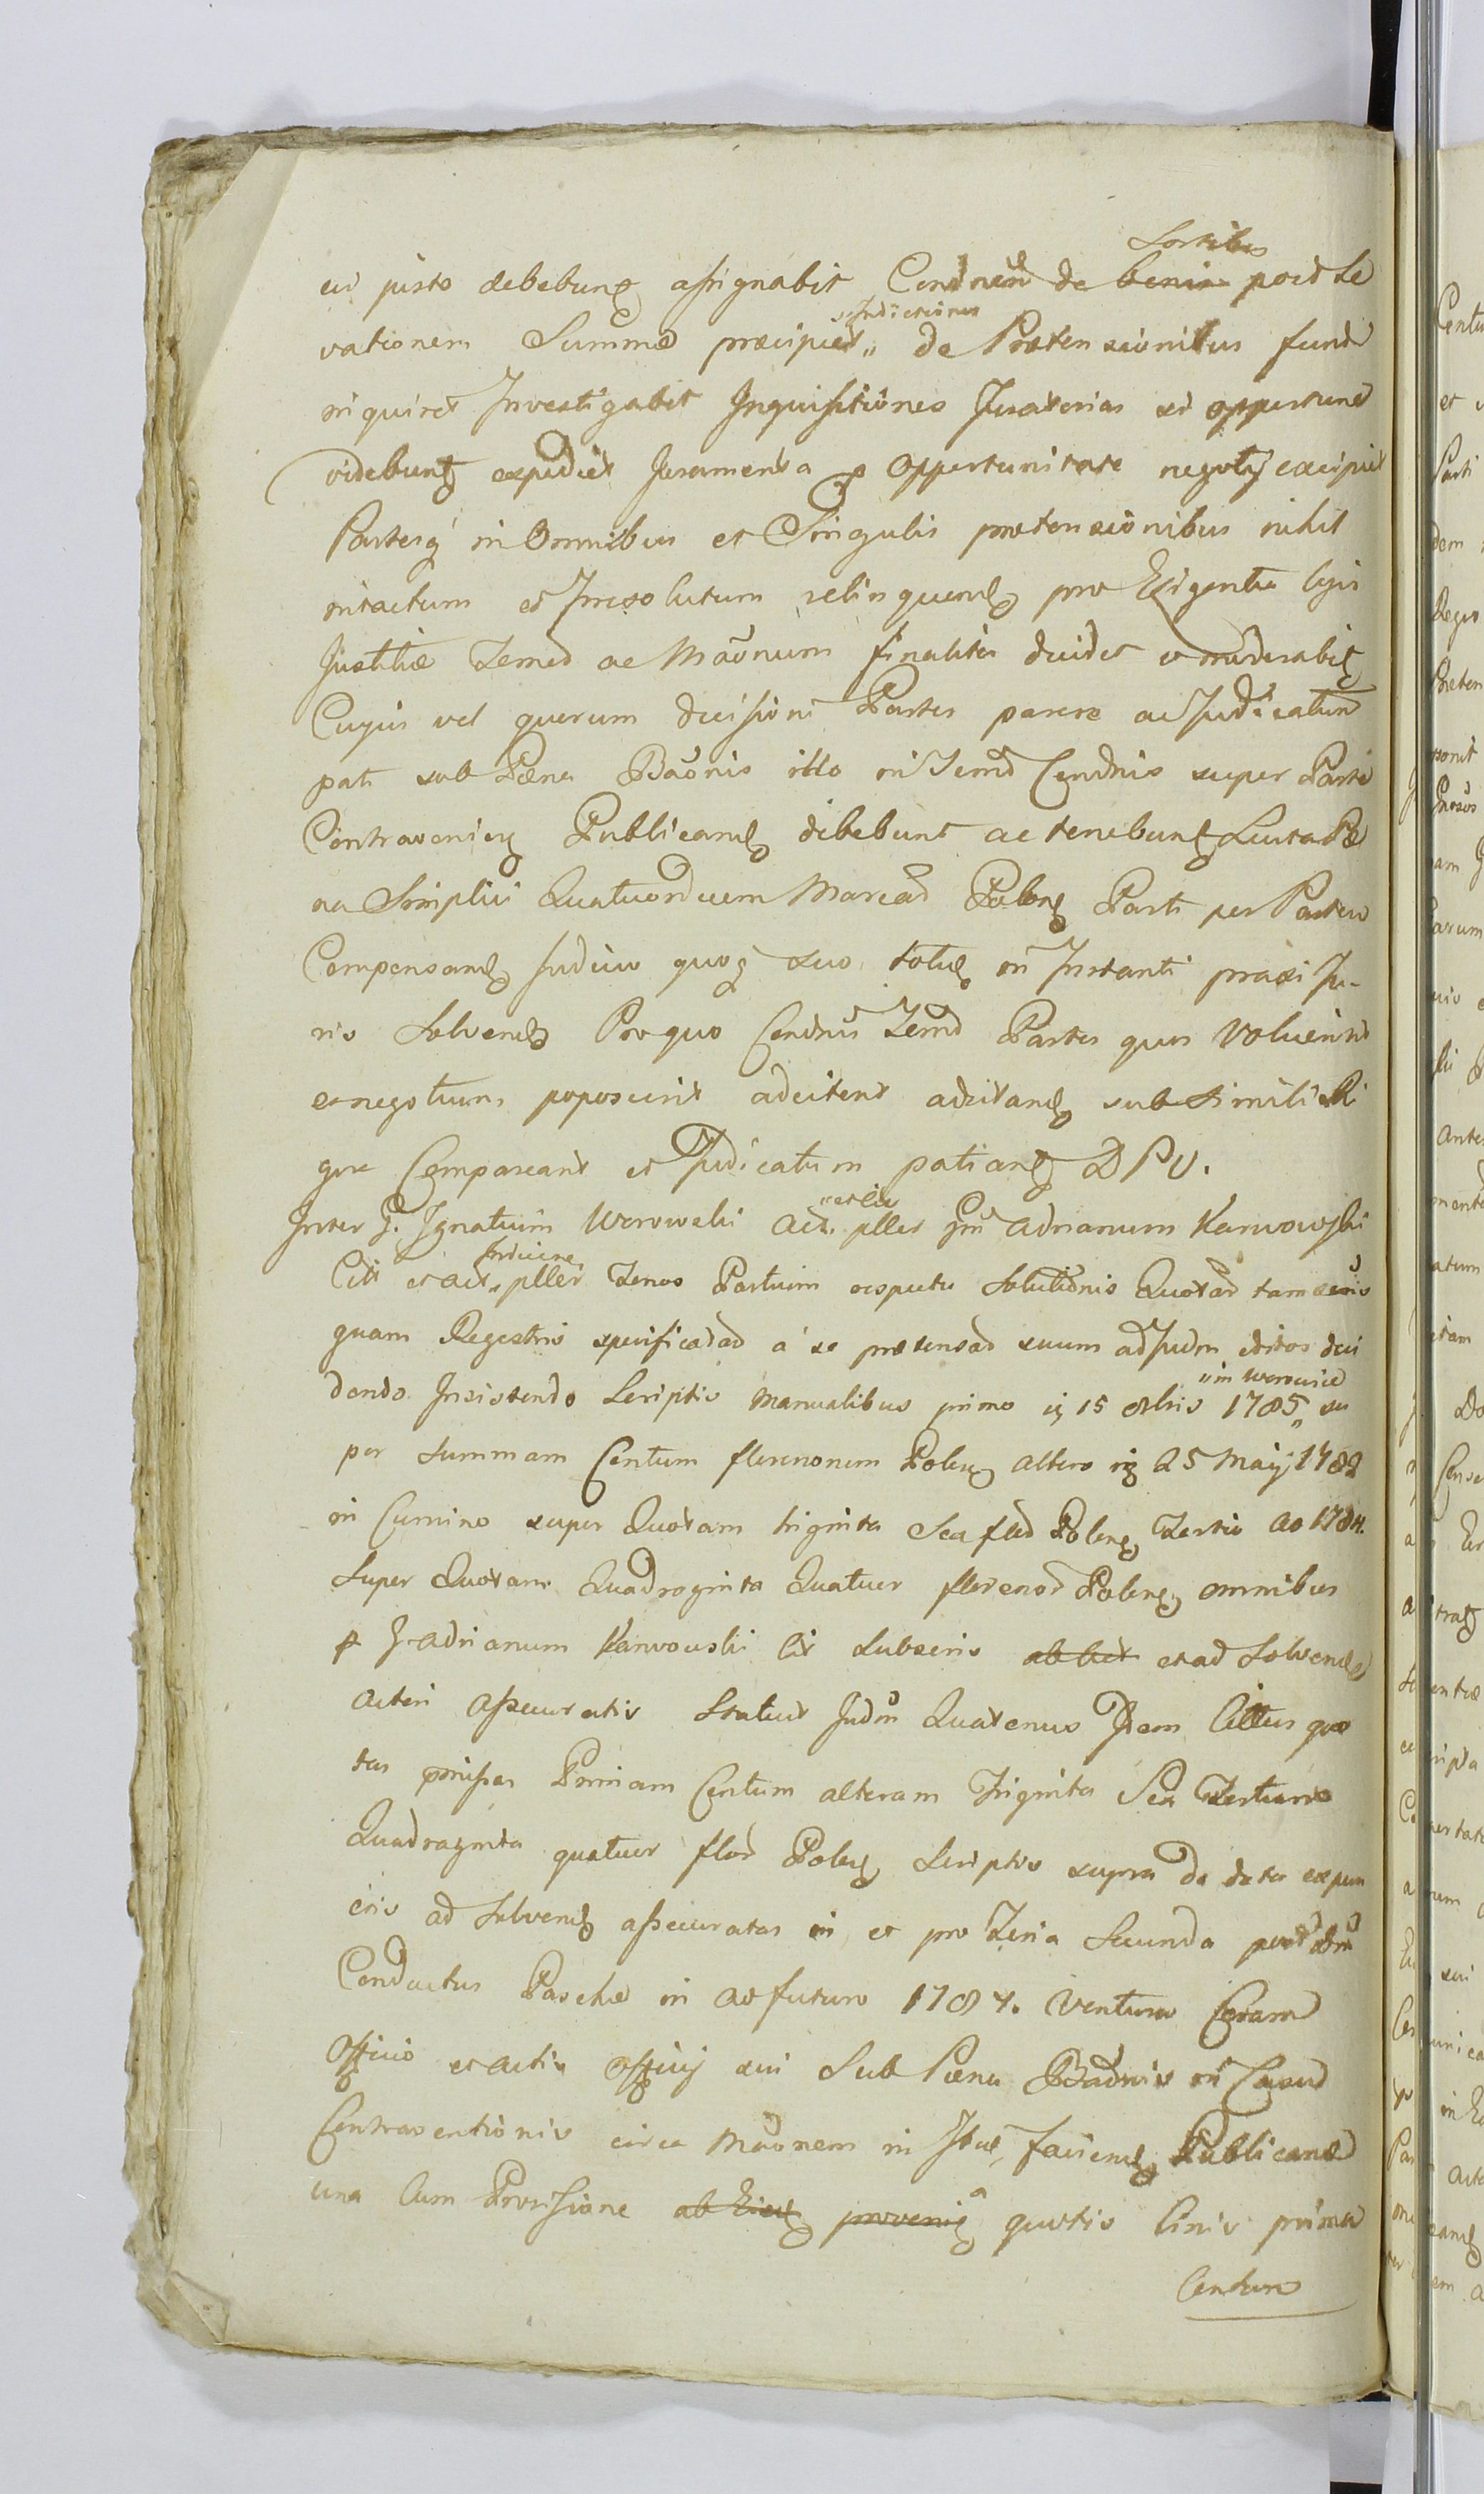 Sortibus
ei justo debebunt assignabit Condnem de benis post Le
Indictiones
vationem Summæ præcipiet de Prætensionibus fund
inquiret Investigabit Inquisitiones Juratorias si opportune
videbunt expediet Juramenta p Opportunitate negotij excipiet
Partesq in Omnibus et Singulis prætensionibus nihil
intactum et Irresolutum relinquend pro Exigentia legis
Justitiæ Zemd ac Maonum finaliter decidet
Cujus vel quorum decisioni Partes parere ac Judicatum
pati sub Pæna Baonis illo in Zemd Condnis super Parte
Contravenien Publicand debebunt ac tenebunt Luita Pæ
na Simplici Quatuordecem Marcad Polon Parti per Partem
Compensand Judicio quoq suo solut in Instanti praxi Ju-
ris Solvend Pro quo Condnis Zemd Partes quas Voluerint
et negotium poposcerit adcitent adcitand sub simili Ri
gore Compareant et Judicatum patiant D P U.
et Cit
Inter G. Ignatium Werowski Act. pller Gm Adrianum Karwowski
Cit et act pller Zenos Partium respectu Solutionis Quotad tam
quam Regestris specificatad a se prætensad suum ad Judm editos deci
in Werowice
dendo Insistendo Scriptis Manualibus primo 15 8bris 1785 su
per Summam Centum florenorum Polon altero 25 Maij 1782
in Cumino super Quotam triginta Sex fled Polon Tertio Ao 1784.
Super Quotam Quadraginta Quatuor florenod Polon omnibus
p G. Adrianum Karwowski Cit Subscris et ad Solvend
Actori Assecuratis Statuit Judm Quatenus Idem Cittus quo
tas præmissas Primam Centum alteram Triginta Sex Tertiam
Quadraginta quatuor flor Polon Scriptis supra de data expres
sis ad Solvend assecuratas in et pro Feria Secunda post
Conductus Paschæ in Ao futuro 1787. Venturo Coram
Officio et actis Officij sui Sub Pæna Baonis in Casud
Contraventionis circa Maonem in faciend Publicand
una Cum Provisione ab provenien a quotis Cinis prima
Centum